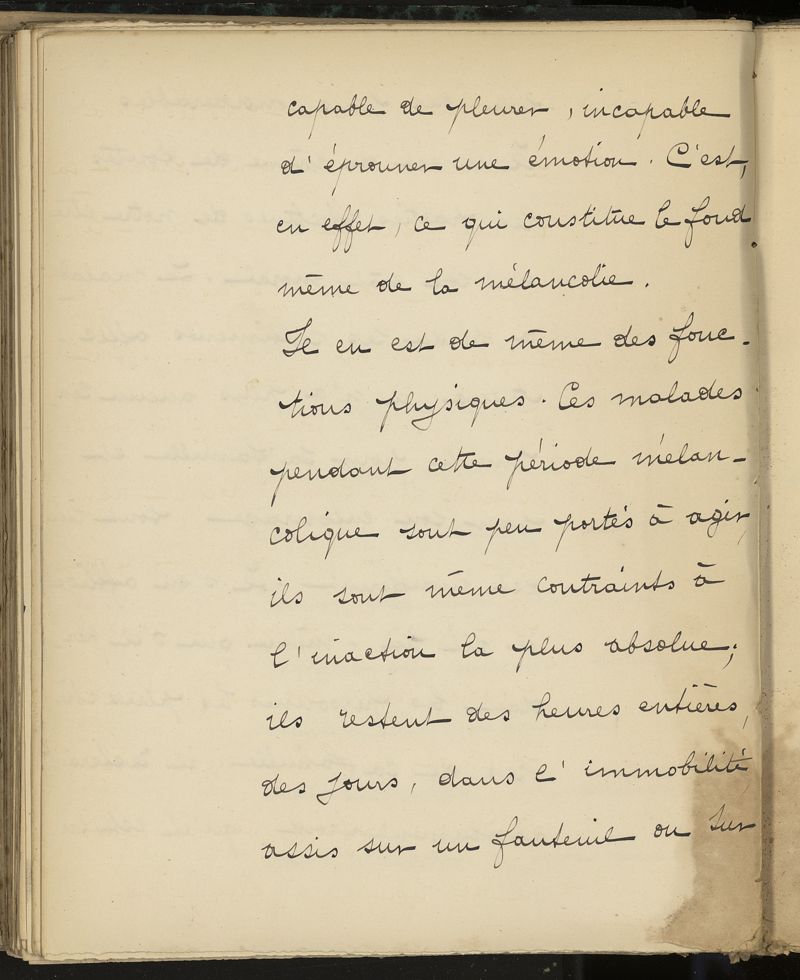 capable de pleurer, incapable
d'éprouver une émotion. C'est,
en effet, ce qui constitue le fond
même de la mélancolie.
Il en est de même des fonc-
tions physiques. Ces malades
pendant cette période mélan-
colique sont peu portés à agir,
ils sont même contraints à
l'inaction la plus absolue;
ils restent des heures entières,
des jours, dans l'immobilité
assis sur un fauteuil ou sur